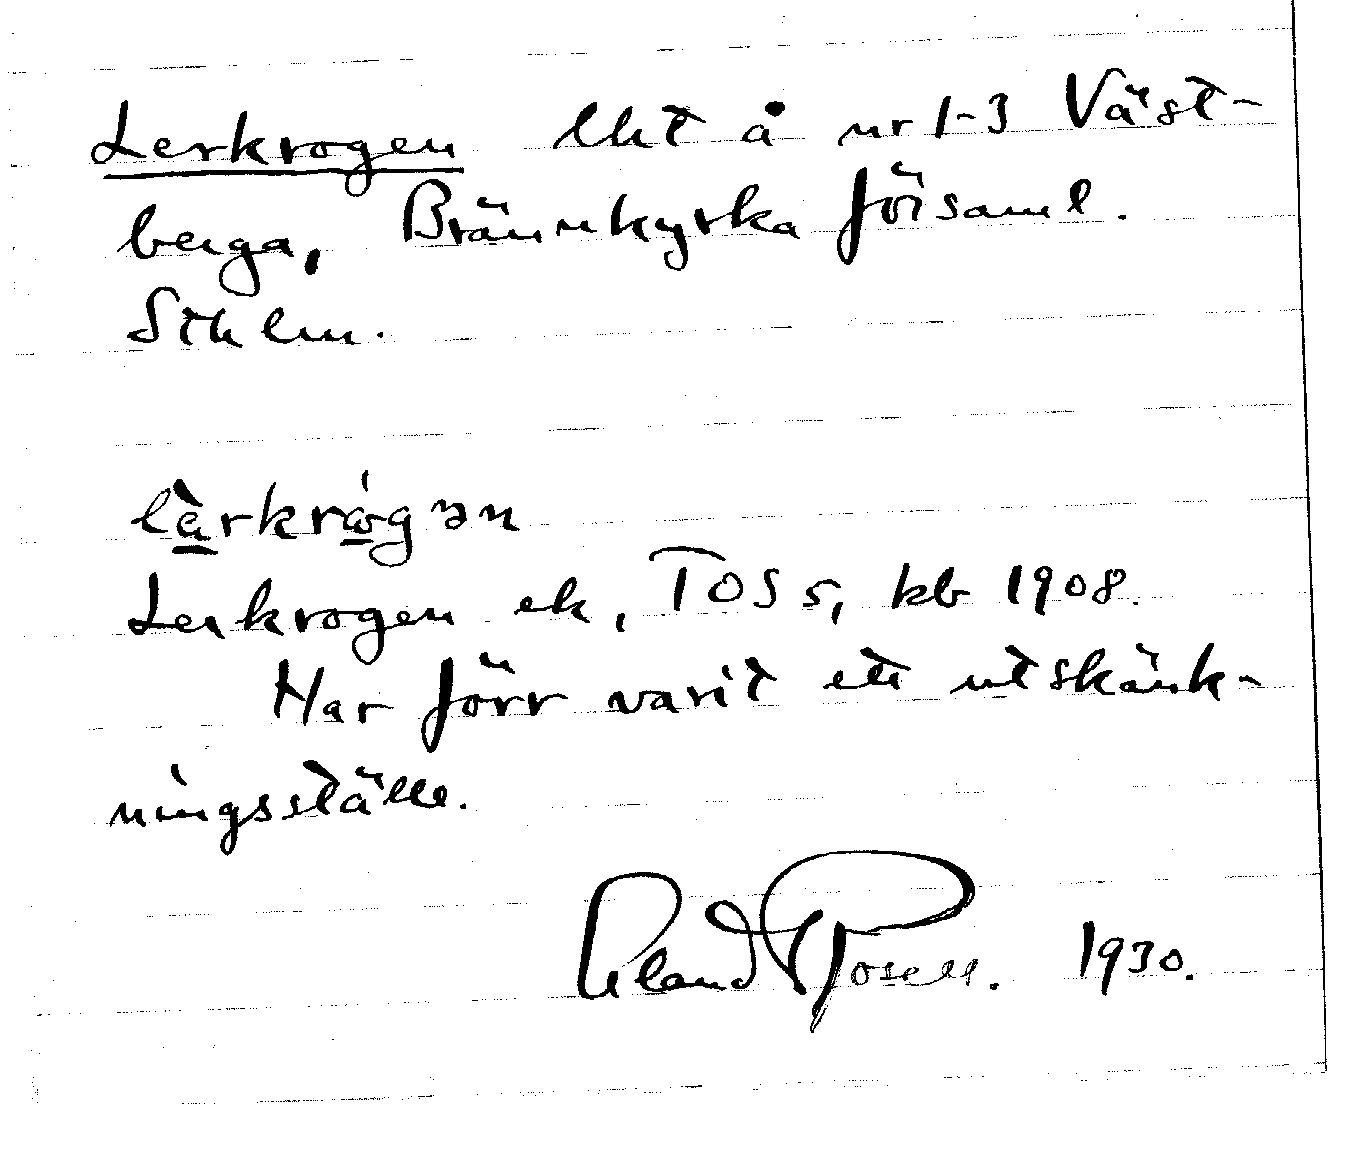 Lerkrogen lht å nr 1-3 Väst-
berga, Brännkyrka församl.
Sthlm.
làrkrǻgən
Lerkrogen ek, TOS 5, kb 1908.
Har förr varit ett utskänk-
ningsställe.
Rosell. 1930.